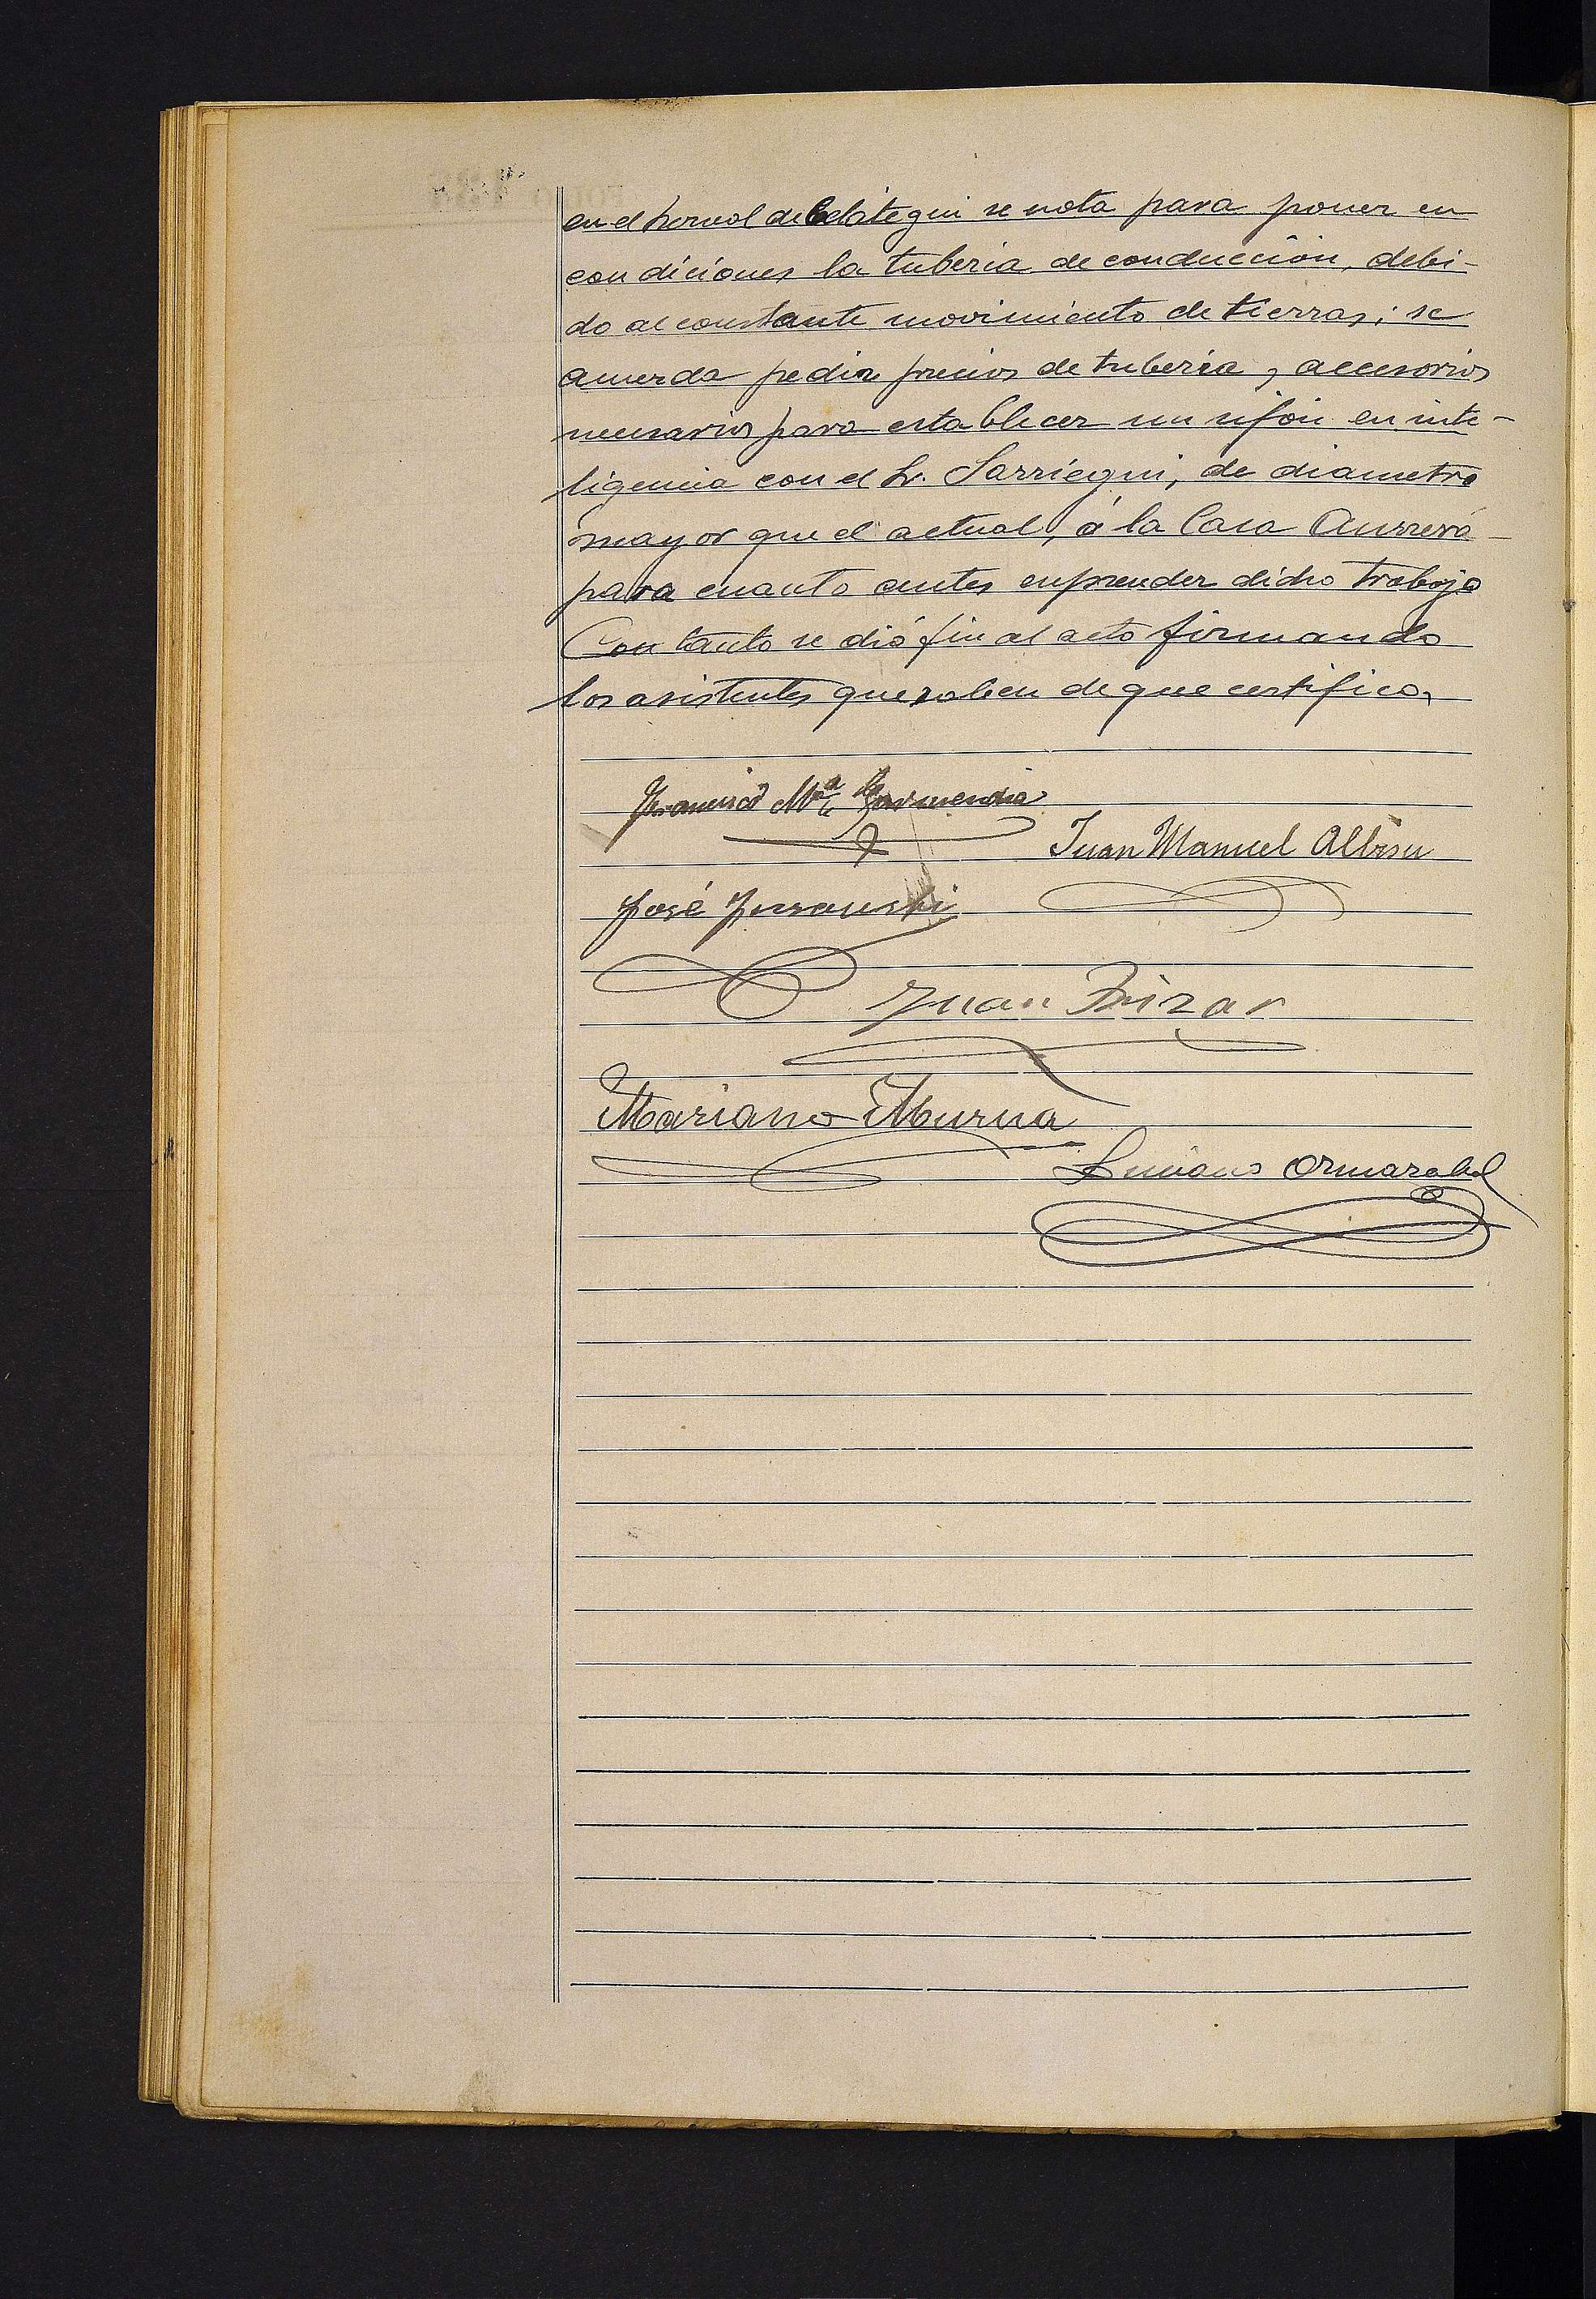 en el hornal de Celategui se nota para poner en
condiciones la tuberia de conducción, debi-
do al constante movimiento de tierras; se
acuerda pedir precios de tuberia y accesorios
necesarios para establecer un sifón en inte-
ligencia con el Sr. Sarriegui, de diametro
mayor que el actual, á la Casa Aurrerá
para cuanto antes emprender dicho trabajo
Con tanto se dió fin al acto firmando
los asistentes que saben de que certifico,
Francisco Mª Garmendia
Juan Manuel Albisu
José
Juan
Mariano Murua
Luciano Ormazabal